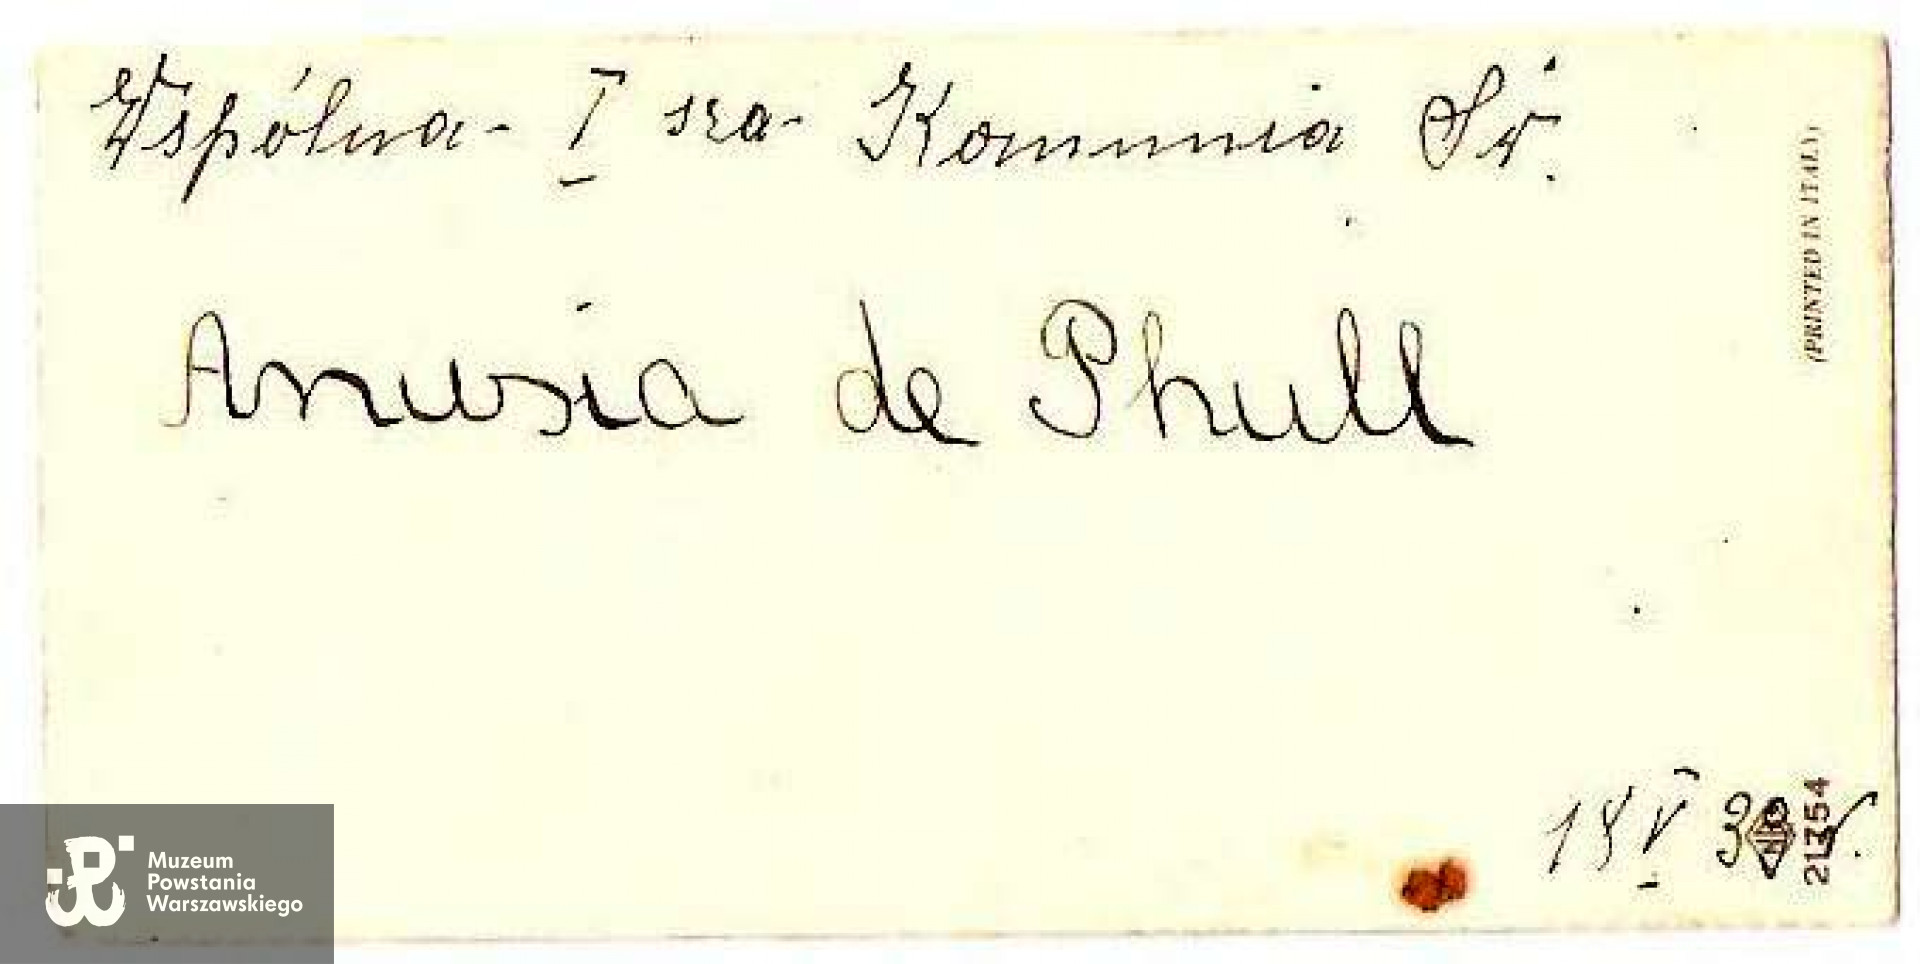 Wspólna - I sza - Komunia Św.
Anusia de Phull
(PRINTED IN ITALY)
V 3 r.
21354
Muzeum
Powstania
Warszawskiego